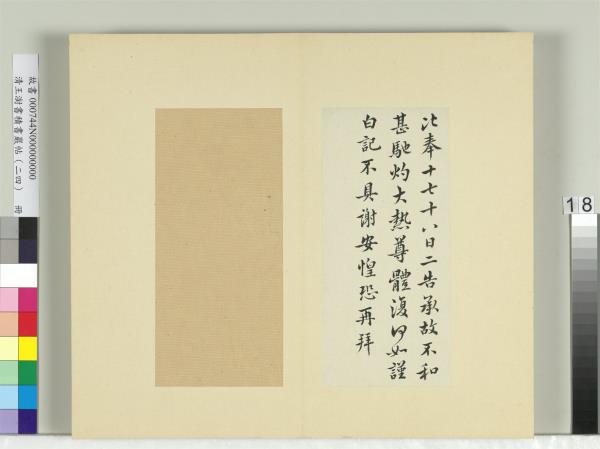 比奉十七十八日二告承故不和
甚馳灼大熱尊體復何如謹
白記不具謝安惶恐再拜
故書 000744N000000000
清王澍書積書巖帖（二四） 冊
18